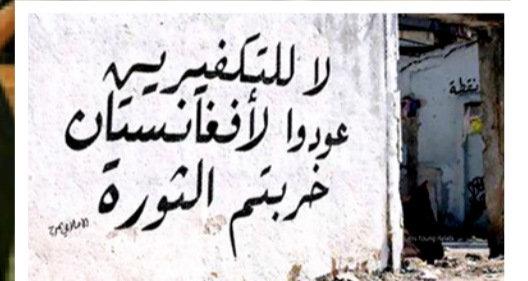 لا للتكفيريين
عودوا لأفغانستان
خربتم الثورة
نقطة